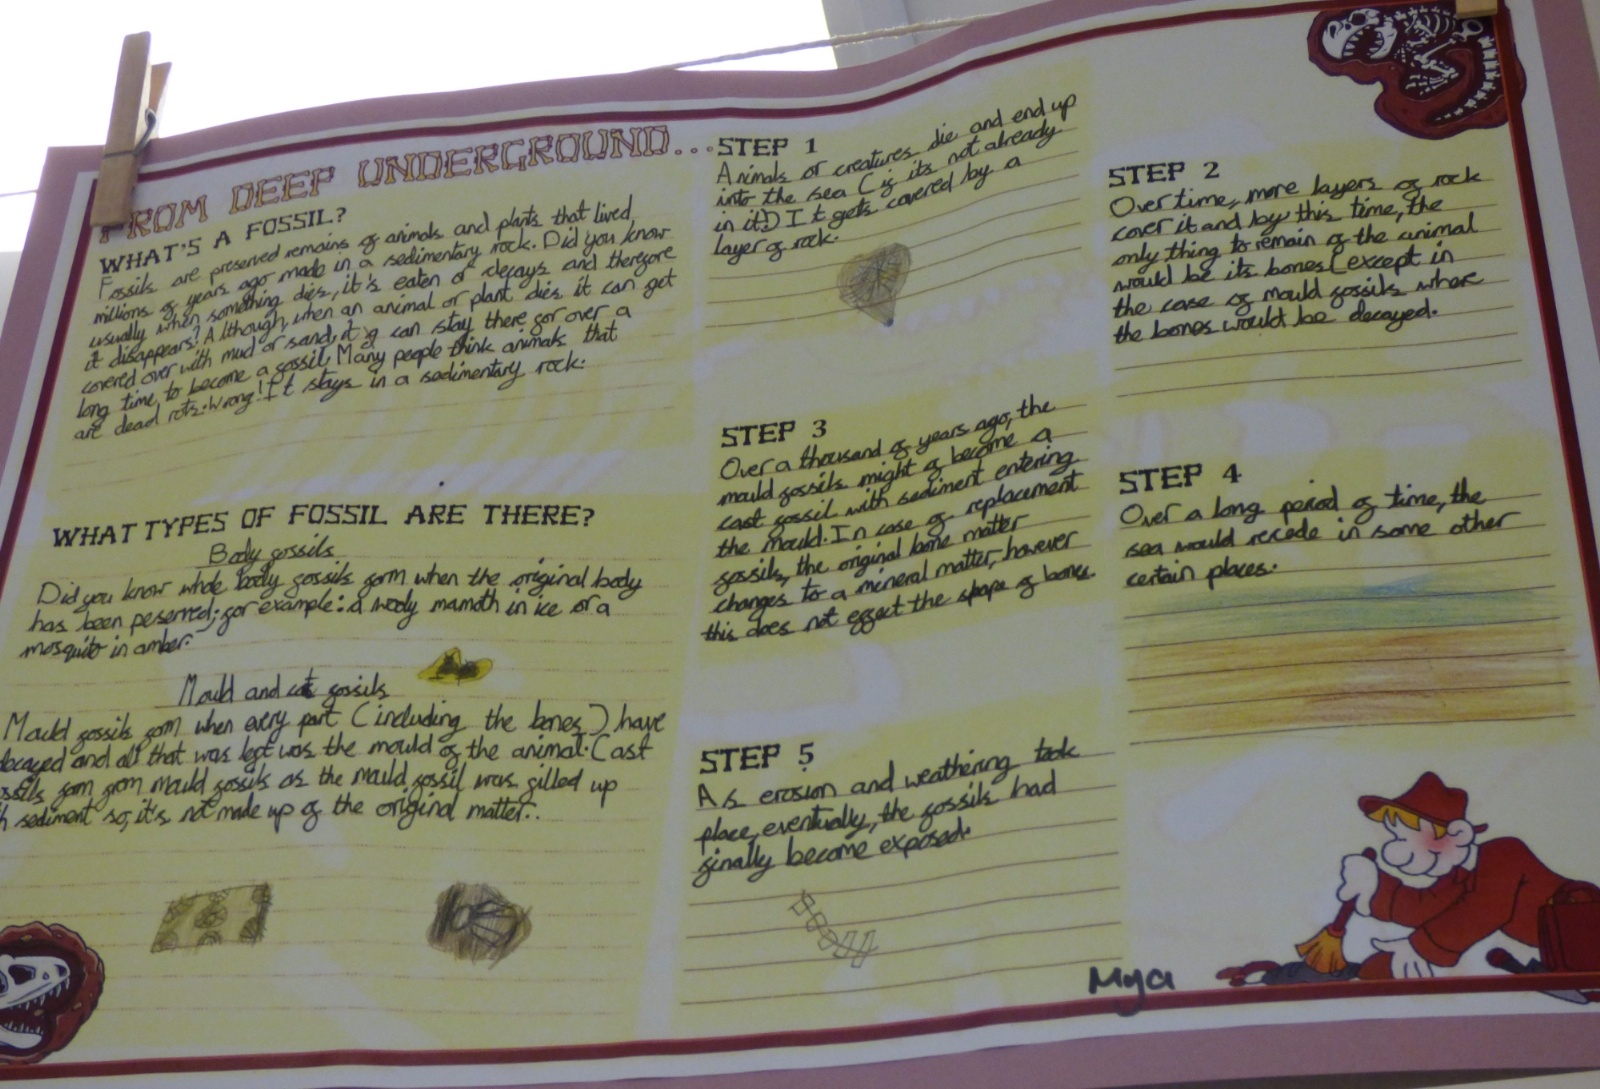 FROM DEEP UNDERGROUND...
WHAT'S A FOSSIL?
Fossils are preserved remains of animals and plants that lived
millions of years ago made in a sedimentary rock. Did you know
usually when something dies, it's eaten or decays and therefore
it disappears! Although, when an animal or plant dies it can get
covered over with mud or sand, it can stay there for over a
long time, to become a fossil. Many people think animals that
are dead rots. Wrong! It stays in a sedimentary rock.
WHAT TYPES OF FOSSIL ARE THERE?
Body fossils
Did you know whole body fossils form when the original body
has been peserred; for example: a wooly mamoth in ice or a
mosquito in amber.
Mould and cast fossils
Mould fossils form when every part (including the bones) have
decayed and all that was left was the mould of the animal. Cast
fossils form from mould fossils as the mould fossil was filled up
h sediment so, it's not made up of the original matter..
STEP 1
Animals or creatures die and end up
into the sea (if its not already
in it!) It gets covered by a
layer of rock.
STEP 2
Over time, more layers of rock
cover it and by this time, the
only thing to remain of the animal
would be its bones (except in
the case of mould fossils where
the bones would be decayed.
STEP 3
Over a thousand of years ago, the
mould fossils might of become a
cast fossil with sediment entering
the mould. In case of replacement
fossils, the original bone matter
changes to a mineral matter, however
this does not effect the shape of bones.
STEP 4
Over a long period of time, the
sea would recede in some other
certain places.
STEP 5
As erosion and weathering took
place, eventually, the fossils had
finally become exposed.
Mya